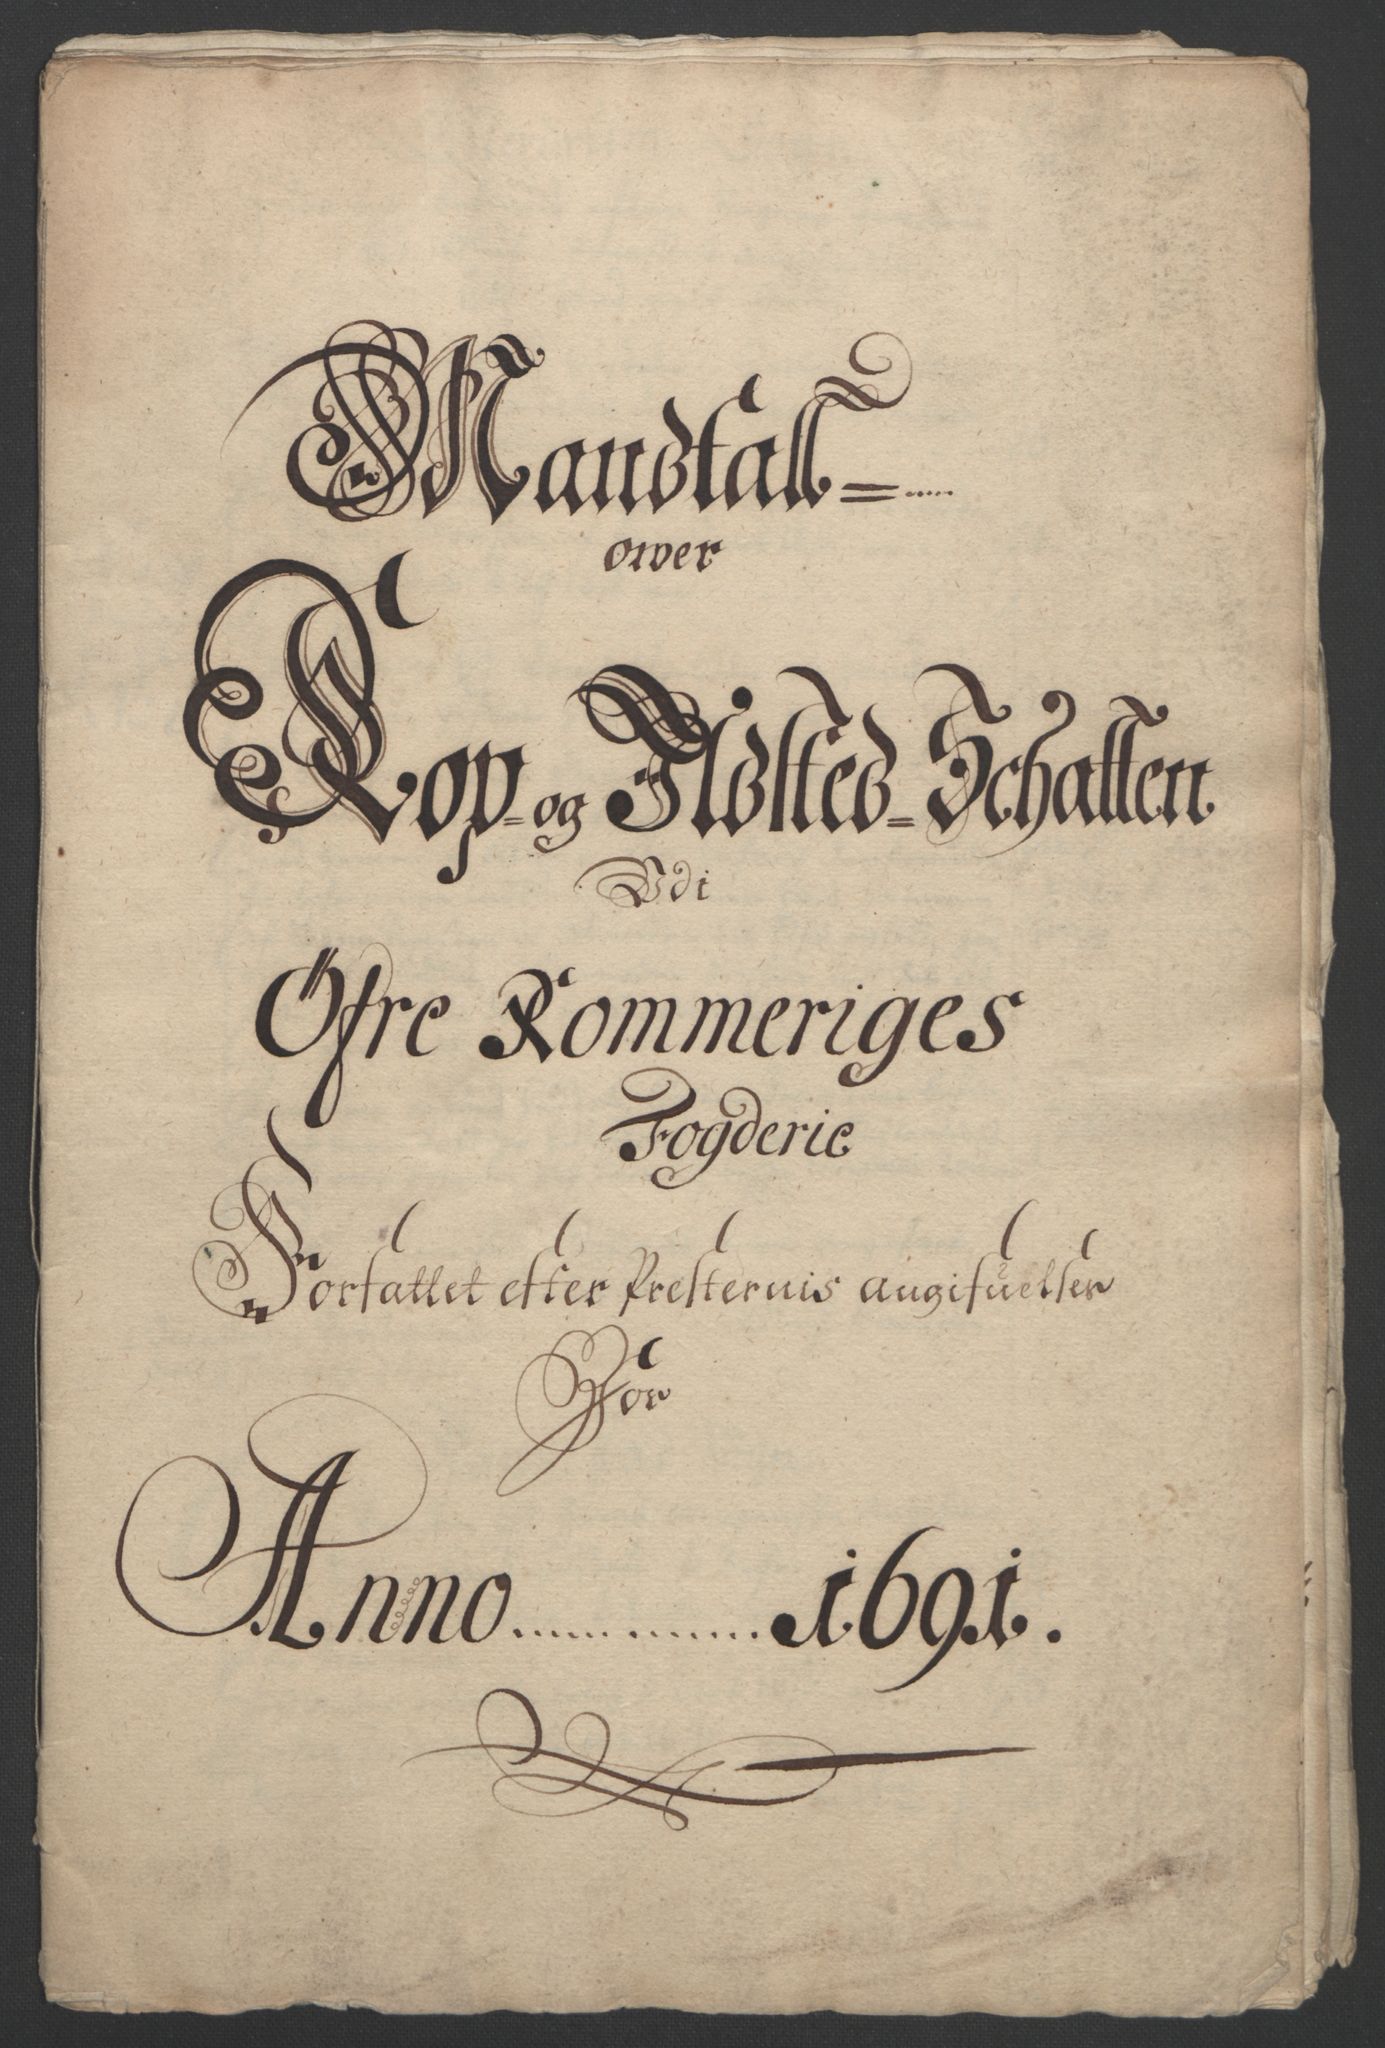 Mandtall
ower
Kop- og Ildsted-Schatten
Udi
Öfre Rommeriges
Fogderie
Forfattet efter Presternis angifuelser
For
Anno ........... 1691.